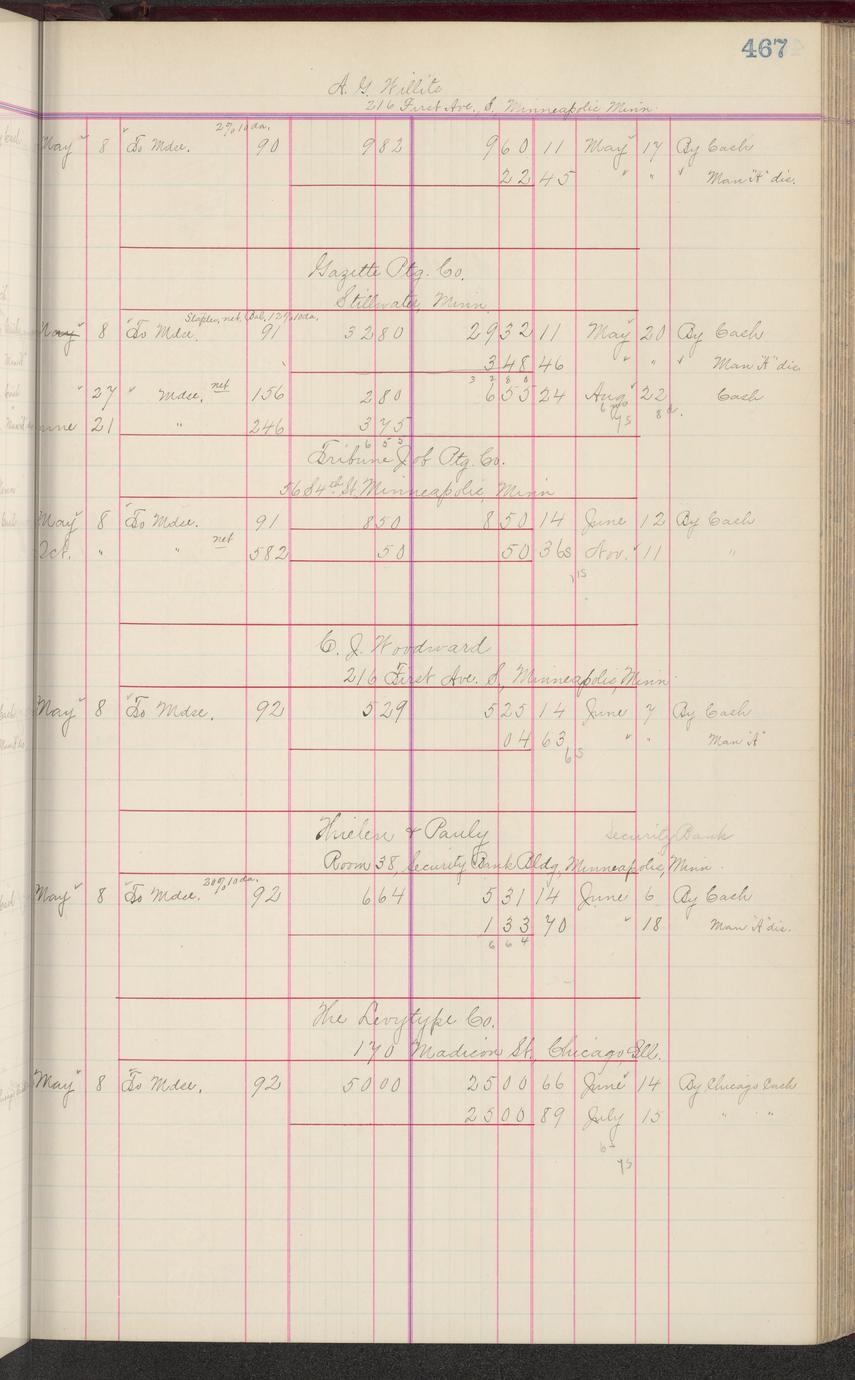 467
A. G. Willits
216 First Ave., S, Minneapolis Minn.
2% 10 da.
May 8 To Mdse. 90 982 960 11 May 17 By Cash
22 45 " " " Man "A" dis.
Gazette Ptg. Co.
Stillwater, Minn
Staples, net, Bal. 12% 10 da.
May 8 To Mdse. 91 3280 2932 11 May 20 By Cash
348 46 " " " Man "A" dis
3 2 8 0
" 27 " Mdse. net 156 280 655 24 Aug 22 Cash
June 21 " 246 375
6 5 5
Tribune Job Ptg. Co.
56 S 4th St, Minneapolis, Minn
May 8 To Mdse. 91 850 850 14 June 12 By Cash
Oct. " " net 582 50 50 36s Nov. 11 "
C. J. Woodward
216 First Ave. S, Minneapolis, Minn.
May 8 To Mdse. 92 529 525 14 June 7 By Cash
04 63 " " Man "A"
6s
Thielen & Pauly Security Bank
Room 38, Security Bank Bldg, Minneapolis, Minn.
20% 10 da.
May 8 To Mdse. 92 664 531 14 June 6 By Cash
133 70 " 18 Man "A" dis.
6 6 4
The Levytype Co.
170 Madison St, Chicago, Ill.
May 8 To Mdse. 92 5000 2500 66 June 14 By Chicago Cash
2500 89 July 15 " "
6s
7s